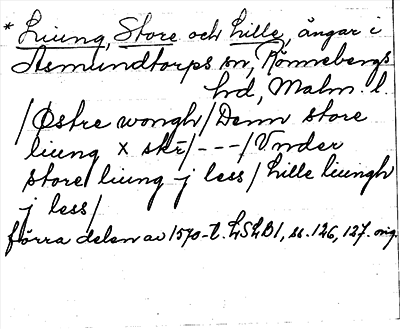 * Liung, Store och Lille, ängar i
Asmundtorps sn, Rönnebergs
hd, Malm. l.
/Østre wongh/Denn store
liung x skr/---/Vnder
store liung j less/Lille liungh
j less/
förra delen av 1570-t. LSLB1, ss. 126, 127. orig.